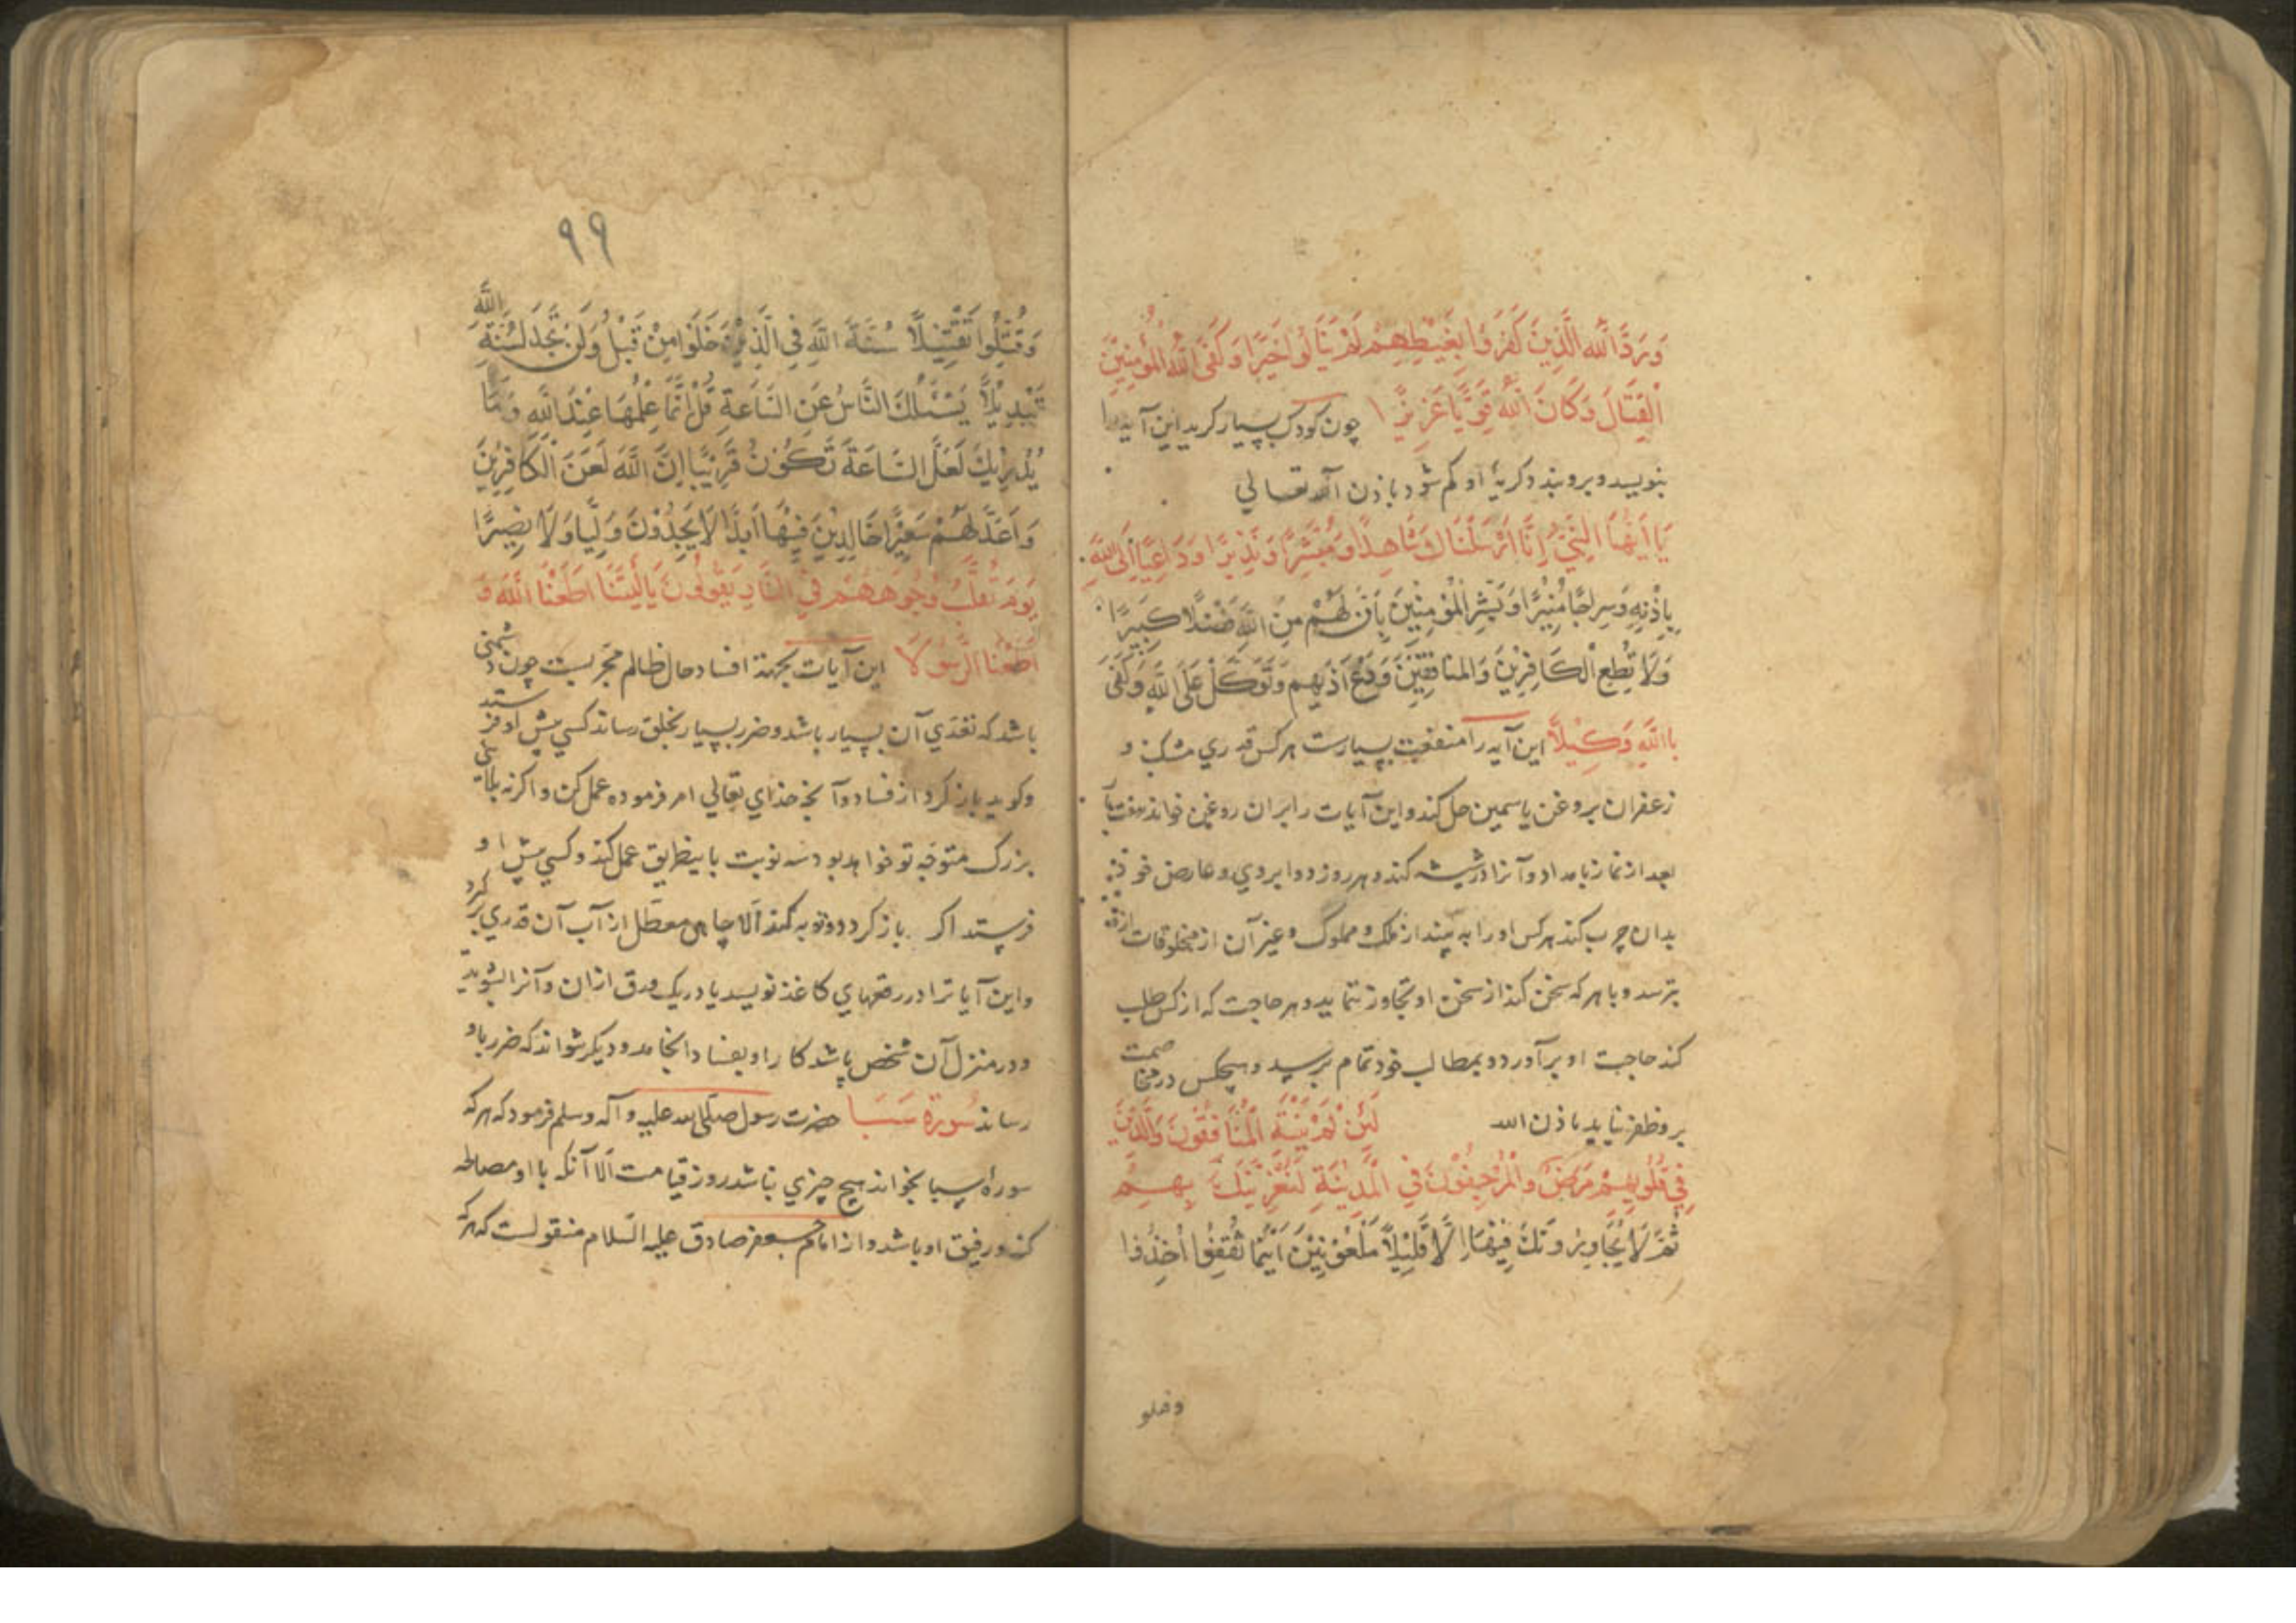 وَرَدَّ اللَّهُ الَّذِينَ كَفَرُوا بِغَيْظِهِمْ لَمْ يَنَالُوا خَيْرًا وَكَفَى اللَّهُ الْمُؤْمِنِينَ
الْقِتَالَ وَكَانَ اللَّهُ قَوِيًّا عَزِيزًا چون کودک بسیار کرید این آیه را
بنویسد و برو بندد کریهٔ او کم شود باذن الله تعالی
يَا أَيُّهَا النَّبِيُّ إِنَّا أَرْسَلْنَاكَ شَاهِدًا وَمُبَشِّرًا وَنَذِيرًا وَدَاعِيًا إِلَى اللَّهِ
بِإِذْنِهِ وَسِرَاجًا مُنِيرًا وَبَشِّرِ الْمُؤْمِنِينَ بِأَنَّ لَهُمْ مِنَ اللَّهِ فَضْلًا كَبِيرًا
وَلَا تُطِعِ الْكَافِرِينَ وَالْمُنَافِقِينَ وَدَعْ أَذَيهُمْ وَتَوَكَّلْ عَلَى اللَّهِ وَكَفَى
بِاللَّهِ وَكِيلًا این آیه را منفعت بسیارست هر کس قدری مشک و
زعفران بروغن یاسمین حل کند و این آیات را بران روغن خواند
بعد از نماز بامداد و آنرا در شیشه کند و هر روز دو ابروی و عارض خود
بدان چرب کند هر کس او را به بیند از ملک و مملوک و غیر آن از مخلوقات ازو
بترسد و با هر که سخن کند از سخن او تجاوز ننماید و هر حاجت که از کس طلب
کند حاجت او برآورد و بمطالب خود تمام برسد و هیچکس در مخاصمت
بر و ظفر نیابد باذن الله لَئِنْ لَمْ يَنْتَهِ الْمُنَافِقُونَ وَالَّذِينَ
فِي قُلُوبِهِمْ مَرَضٌ وَالْمُرْجِفُونَ فِي الْمَدِينَةِ لَنُغْرِيَنَّكَ بِهِمْ
ثُمَّ لَا يُجَاوِرُونَكَ فِيهَا إِلَّا قَلِيلًا مَلْعُونِينَ أَيْنَمَا ثُقِفُوا أُخِذُوا
وقتلو
٩٩
وَقُتِّلُوا تَقْتِيلًا سُنَّةَ اللَّهِ فِي الَّذِينَ خَلَوْا مِنْ قَبْلُ وَلَنْ تَجِدَ لِسُنَّةِ اللَّهِ
تَبْدِيلًا يَسْئَلُكَ النَّاسُ عَنِ السَّاعَةِ قُلْ إِنَّمَا عِلْمُهَا عِنْدَ اللَّهِ وَمَا
يُدْرِيكَ لَعَلَّ السَّاعَةَ تَكُونُ قَرِيبًا إِنَّ اللَّهَ لَعَنَ الْكَافِرِينَ
وَأَعَدَّ لَهُمْ سَعِيرًا خَالِدِينَ فِيهَا أَبَدًا لَا يَجِدُونَ وَلِيًّا وَلَا نَصِيرًا
يَوْمَ تُقَلَّبُ وُجُوهُهُمْ فِي النَّارِ يَقُولُونَ يَالَيْتَنَا أَطَعْنَا اللَّهَ وَ
أَطَعْنَا الرَّسُولَا این آیات بجهة افساد حال ظالم مجربست چون دشمنی
باشد که تعدی آن بسیار باشد و ضرر بسیار بخلق رساند کسی پیش او فرستد
وکوید بازکرد از فساد و آنچه خدای تعالی امر فرموده عمل کن و اکرنه بلائی
بزرک متوجه تو خواهد بود سه نوبت باینطریق عمل کند و کسی پیش او
فرستد اکر بازکردد و توبه کند الا چاهی معطل از آب آن قدری
و این آیاترا در رقعهای کاغذ نویسد یا در یک ورق ازان و آنرا بشوید
و در منزل آن شخص باشد کار او بفساد انجامد و دیکر نتواند که ضرر باو
رساند سورة سبا حضرت رسول صلی الله علیه وآله وسلم فرمود که هر که
سورهٔ سبا بخواند هیچ چیزی نباشد روز قیامت الا آنکه با او مصالحه
کند و رفیق او باشد و از امام جعفر صادق علیه السلام منقولست که هر که